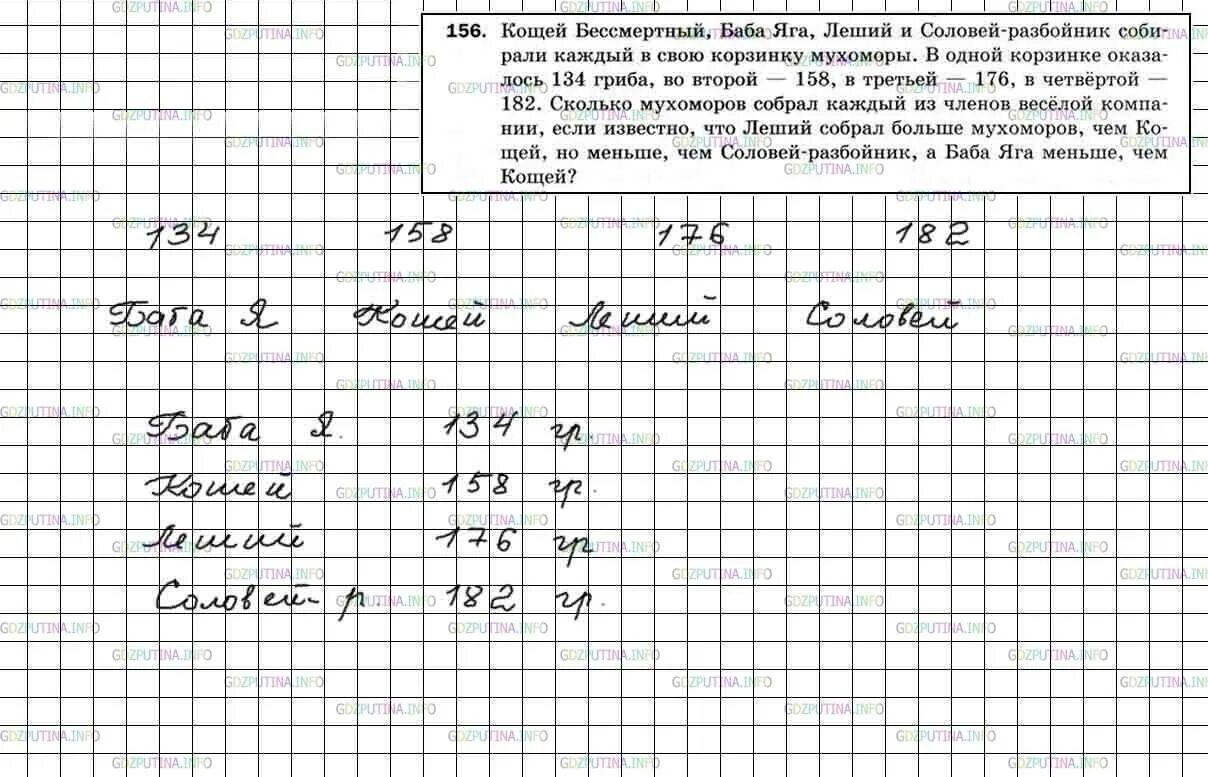 156. Кощей Бессмертный, Баба Яга, Леший и Соловей-разбойник соби-
рали каждый в свою корзинку мухоморы. В одной корзинке оказа-
лось 134 гриба, во второй — 158, в третьей — 176, в четвёртой —
182. Сколько мухоморов собрал каждый из членов весёлой компа-
нии, если известно, что Леший собрал больше мухоморов, чем Ко-
щей, но меньше, чем Соловей-разбойник, а Баба Яга меньше, чем
Кощей?
134 158 176 182
Баба Я Кощей Леший Соловей
Баба Я. 134 гр.
Кощей 158 гр.
Леший 176 гр
Соловей-р. 182 гр.
GDZPUTINA.INFO